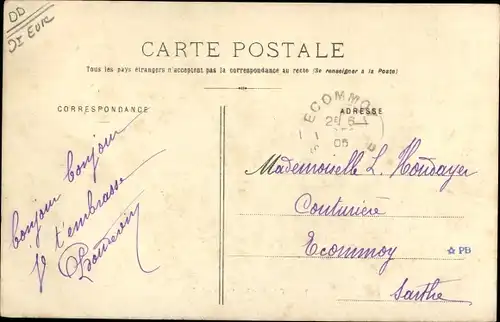 DD
CARTE POSTALE
Tous les pays étrangers n'acceptent pas la correspondance au recto (Se renseigner à la Poste)
CORRESPONDANCE
ECOMMOY
ADRESSE
bonjour bonjour
Je t'embrasse
Mademoiselle L. Houdayer
Couturière
Ecommoy
☆ PB
Sarthe